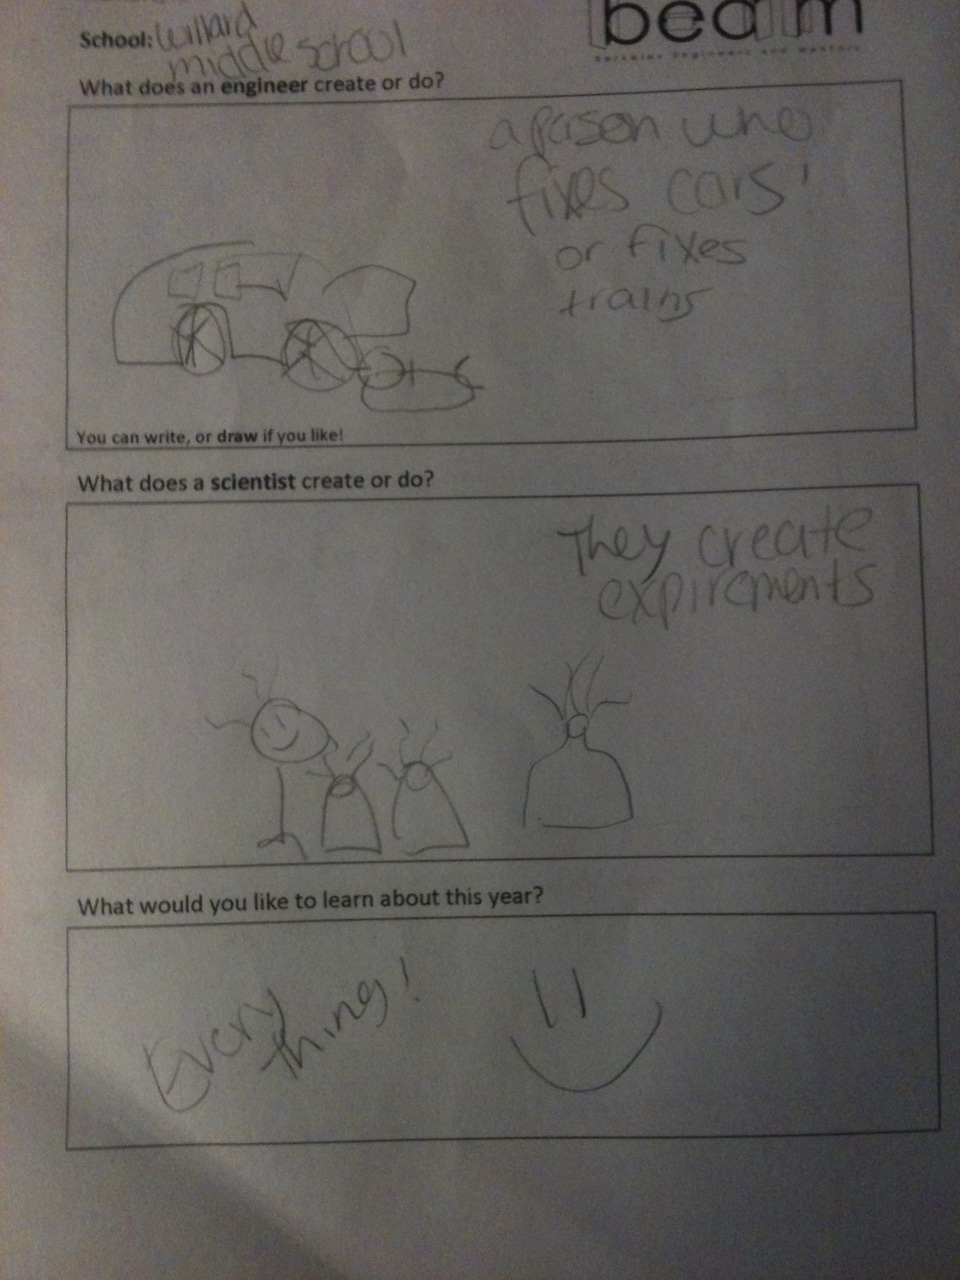 School: Willard
middle school
beam
Berkeley Engineers and Mentors
What does an engineer create or do?
a person who
fixes cars
or fixes
trains
You can write, or draw if you like!
What does a scientist create or do?
They create
expirements
What would you like to learn about this year?
Every
thing!